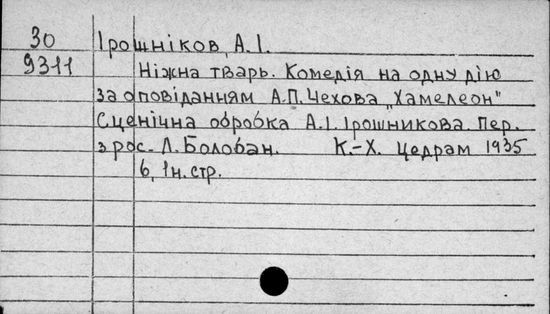 30 Ірошніков, А.І.
9311 Ніжна тварь. Комедія на одну дію
за оповіданням А.П. Чехова „Хамелеон"
Сценічна обробка А.І. Ірошникова. Пер.
з рос. Л. Болобан. К.-Х. Цедрам 1935
6, 1н. стр.